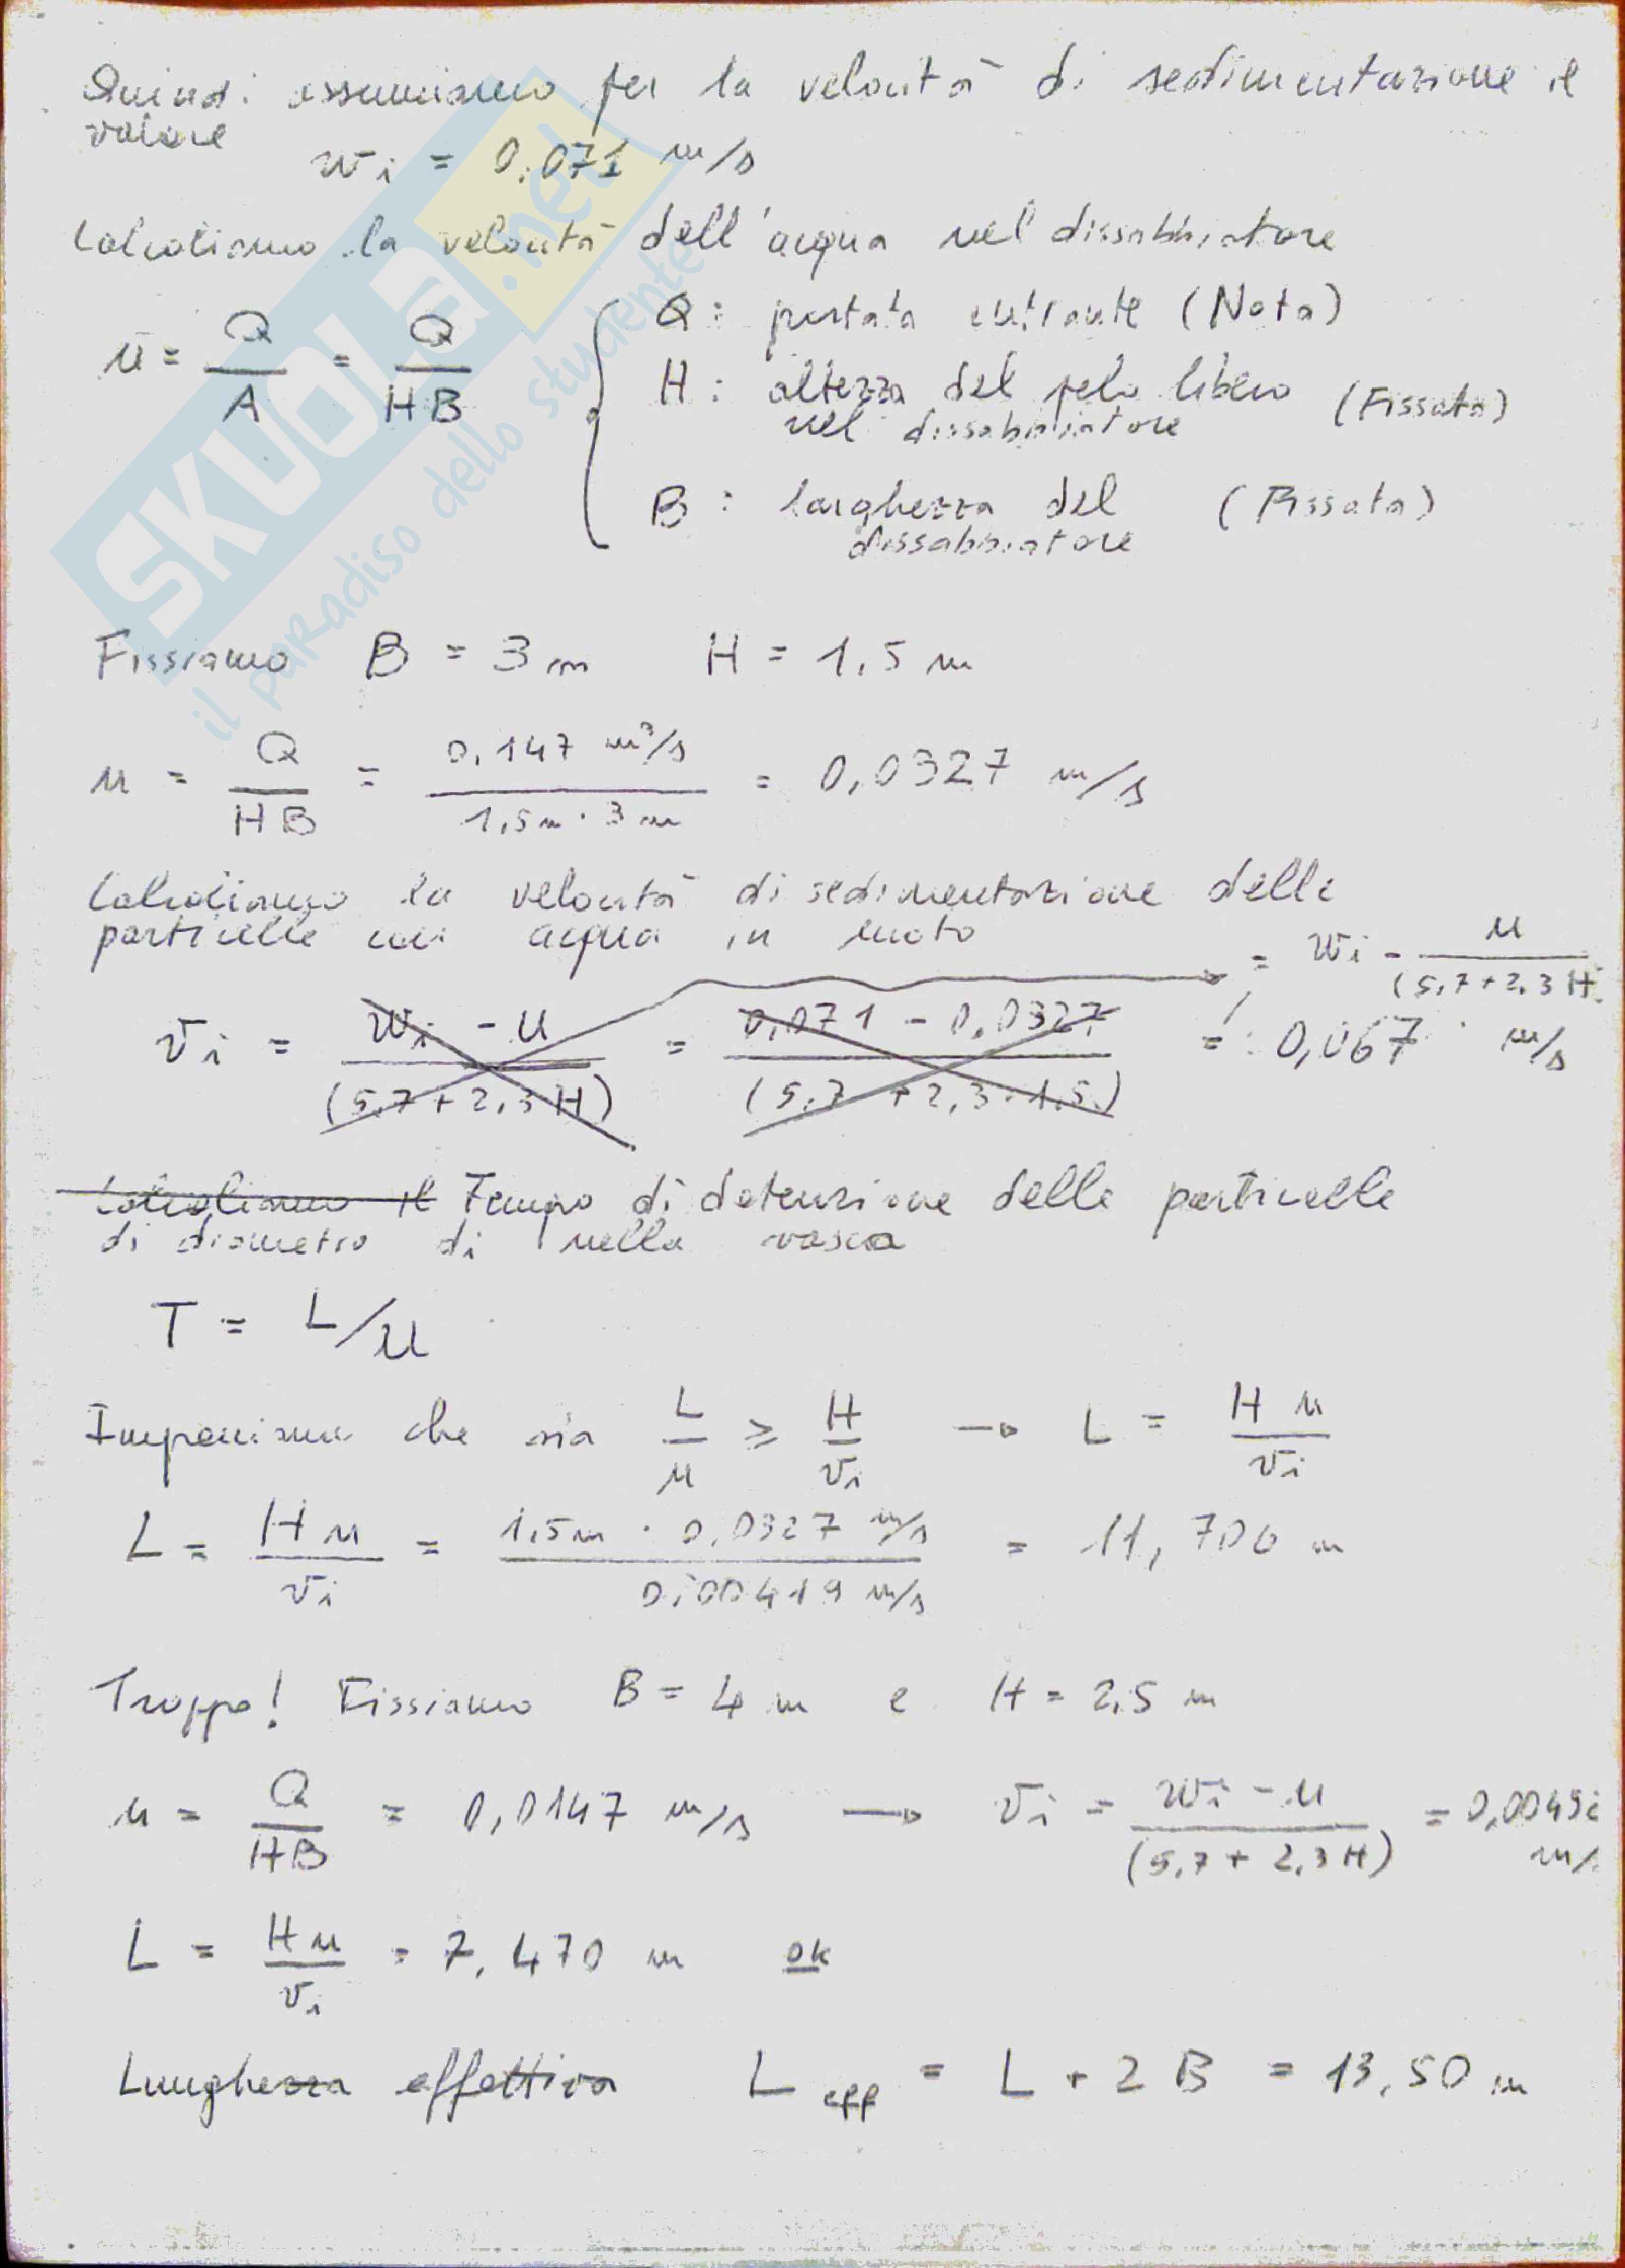 Quindi assumiamo per la velocità di sedimentazione il
valore
wi = 0,071 m/s
Calcoliamo la velocità dell'acqua nel dissabbiatore
u = Q/A = Q/HB
Q: portata entrante (Nota)
H: altezza del pelo libero (Fissata)
nel dissabbiatore
B: larghezza del (Fissata)
dissabbiatore
Fissiamo B = 3 m H = 1,5 m
u = Q/HB = 0,147 m³/s / 1,5m · 3m = 0,0327 m/s
Calcoliamo la velocità di sedimentazione delle
particelle con acqua in moto
= wi - u/(5,7+2,3H
vi = wi - u/(5,7+2,3H) = 0,071 - 0,0327/(5,7+2,3·1,5) = 0,067 m/s
Calcoliamo il Tempo di detenzione delle particelle
di diametro di nella vasca
T = L/u
Imponiamo che sia L/u ≥ H/vi → L = H u/vi
L = H u/vi = 1,5m · 0,0327 m/s / 0,00419 m/s = 11,706 m
Troppo! Fissiamo B = 4 m e H = 2,5 m
u = Q/HB = 0,0147 m/s → vi = wi - u/(5,7+2,3H) = 0,0049
m/
L = H u/vi = 7,470 m ok
Lunghezza effettiva L eff = L + 2B = 13,50 m
SKUOLA.net
il paradiso dello studente